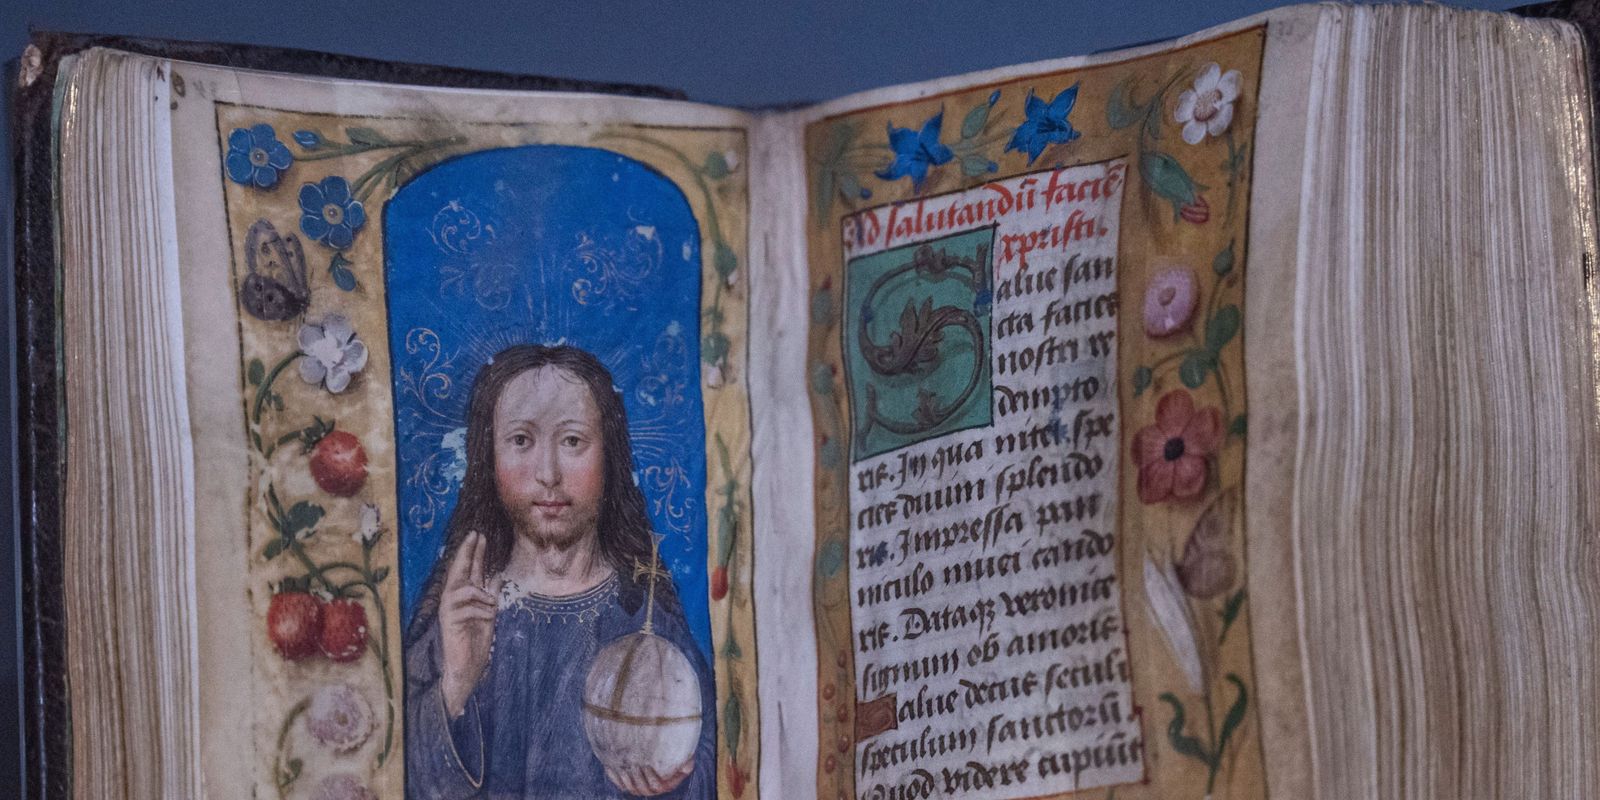 Ad salutandū faciē
xpristi.
Salue san
cta facies
nostri re
dempto
ris. In qua nitet spe
cies diuini splendo
ris. Impressa pan
niculo niuei cando
ris. Dataqꝫ veronice
signum ob amoris.
Salue decus seculi
speculum sanctorū.
Quod videre cupiūt